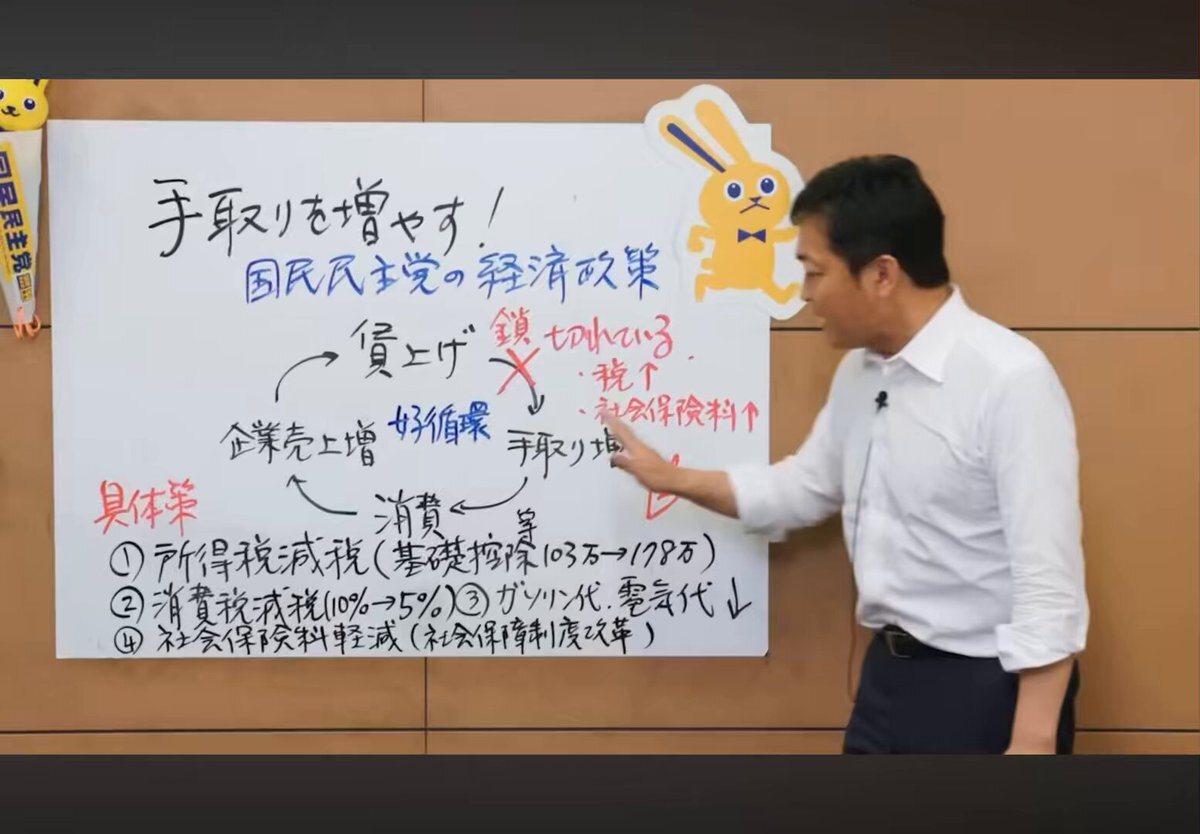 国民民主党
手取りを増やす!
国民民主党の経済政策
賃上げ
鎖 切れている
・税↑
・社会保険料↑
企業売上増
好循環
手取り増
消費
具体策
① 所得税減税(基礎控除等103万→178万)
② 消費税減税(10%→5%)③ ガソリン代.電気代↓
④ 社会保険料軽減(社会保障制度改革)